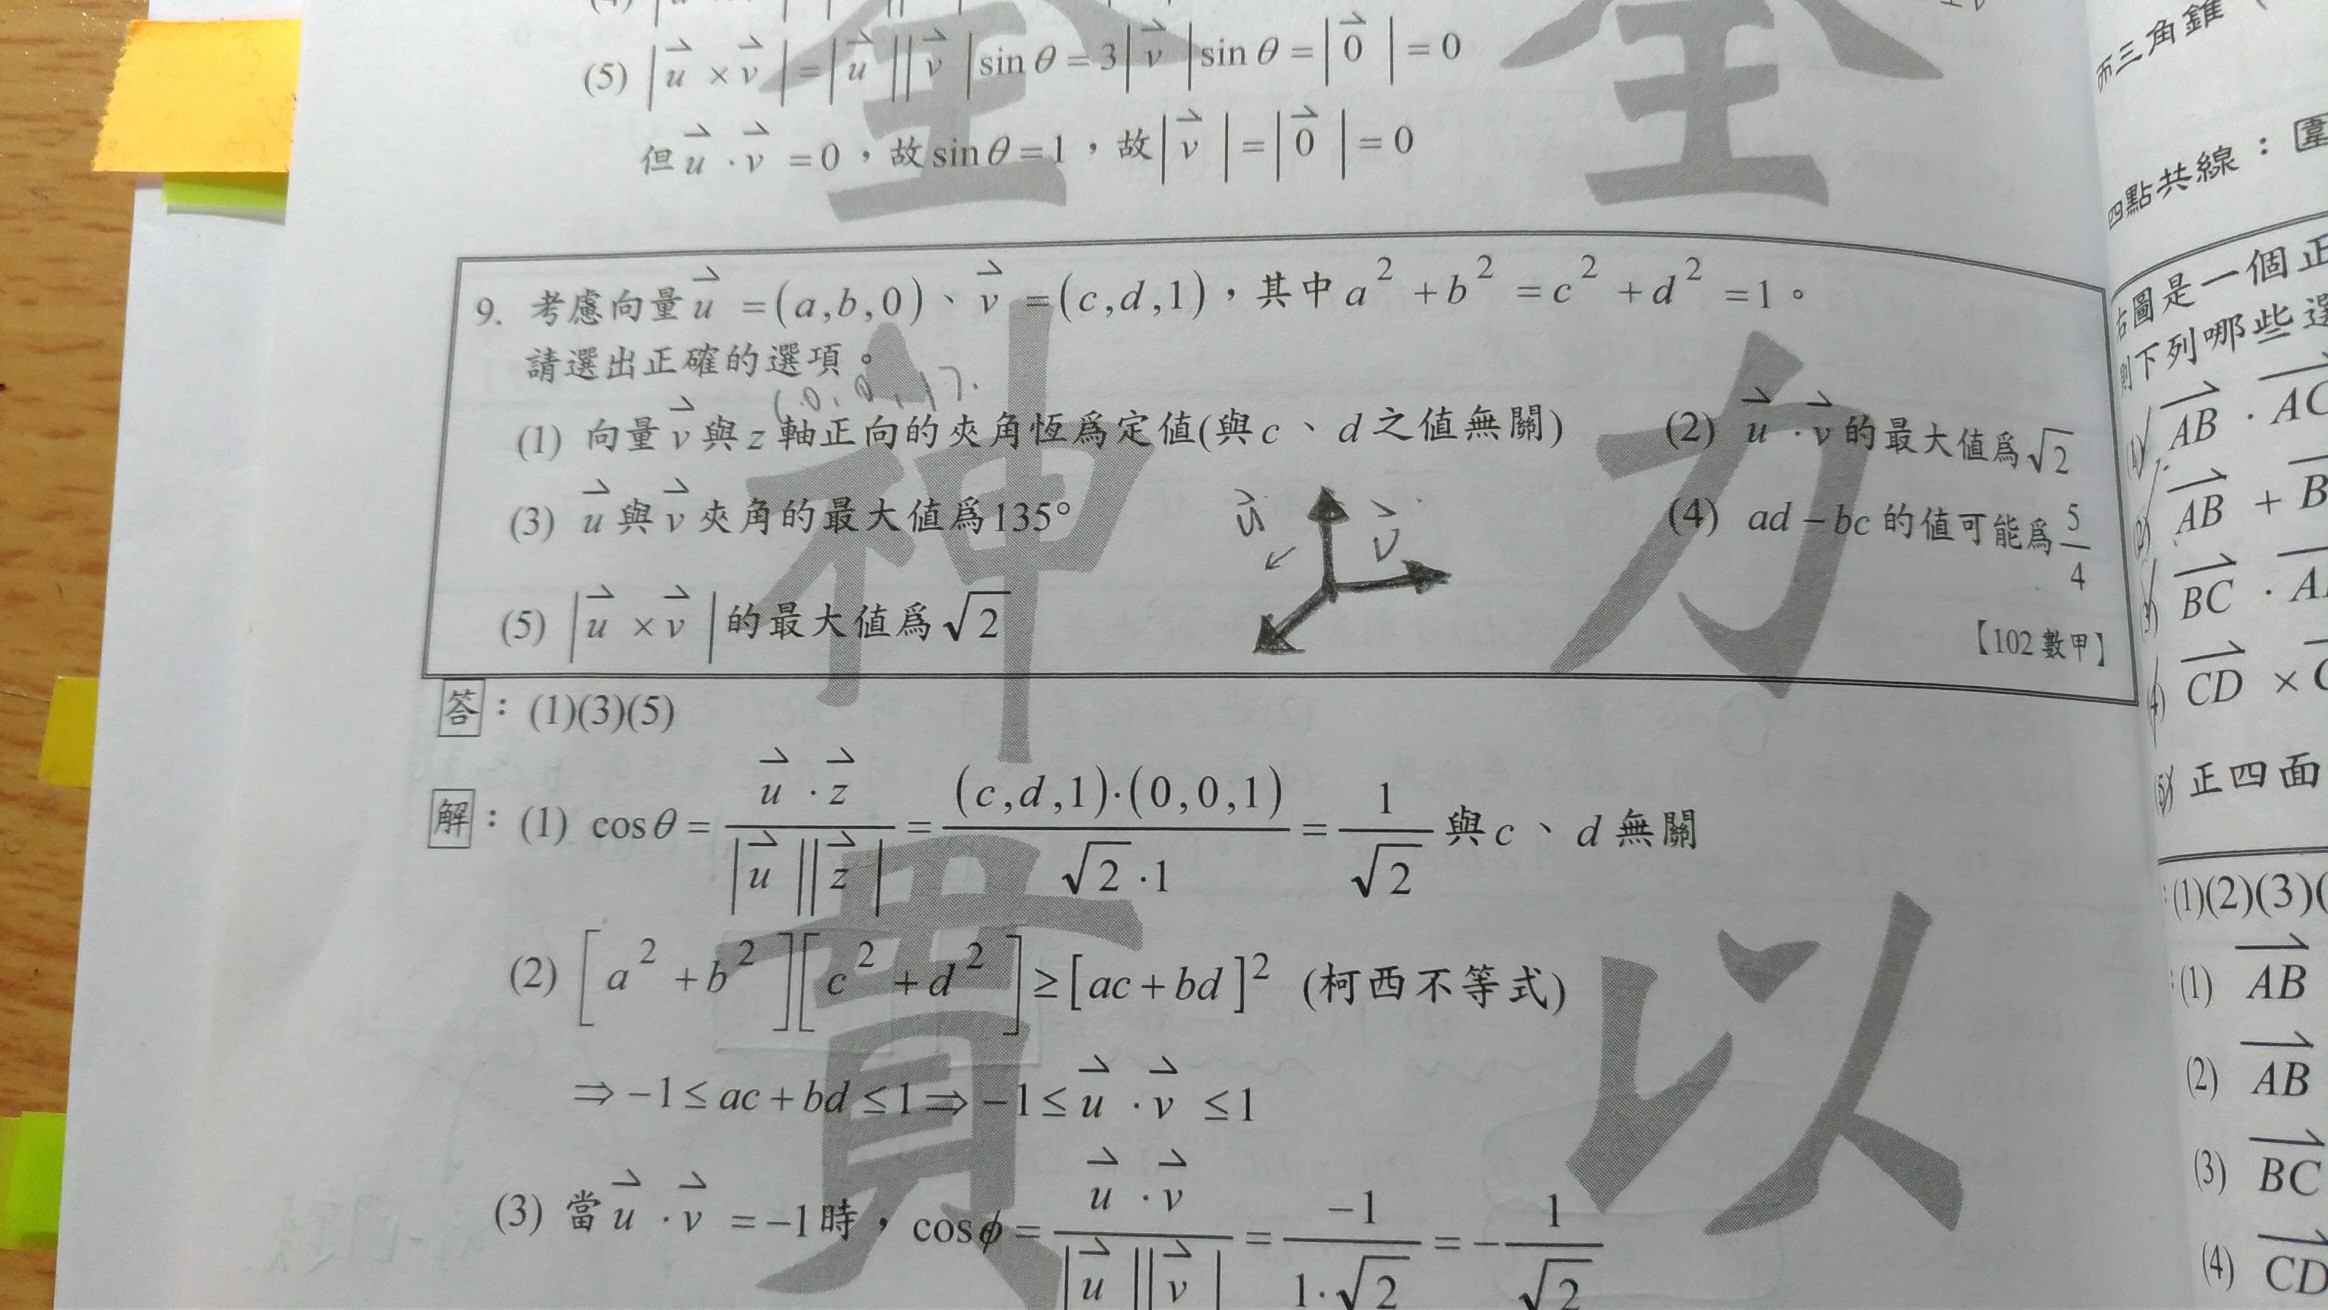 (5) |u⇀ × v⇀| = |u⇀||v⇀| sin θ = 3|v⇀| sin θ = |0⇀| = 0
但 u⇀ · v⇀ = 0，故 sin θ = 1，故 |v⇀| = |0⇀| = 0
9. 考慮向量 u⇀ = (a, b, 0)、v⇀ = (c, d, 1)，其中 a² + b² = c² + d² = 1。
請選出正確的選項。
(1) 向量 v⇀ 與 z 軸正向的夾角恆爲定值(與 c、d 之值無關) (2) u⇀ · v⇀ 的最大值爲 √2
(3) u⇀ 與 v⇀ 夾角的最大值爲 135° (4) ad − bc 的值可能爲 5/4
u⇀ v⇀
(5) |u⇀ × v⇀| 的最大值爲 √2
【102 數甲】
答：(1)(3)(5)
解：(1) cos θ = (u⇀ · z⇀)/(|u⇀||z⇀|) = ((c, d, 1)·(0, 0, 1))/(√2 · 1) = 1/√2 與 c、d 無關
(2) [a² + b²][c² + d²] ≥ [ac + bd]² (柯西不等式)
⇒ −1 ≤ ac + bd ≤ 1 ⇒ −1 ≤ u⇀ · v⇀ ≤ 1
(3) 當 u⇀ · v⇀ = −1 時，cos ϕ = (u⇀ · v⇀)/(|u⇀||v⇀|) = −1/(1·√2) = −1/√2
全 全
神 力
貫 以
而三角錐
四點共線：
右圖是一個正
則下列哪些選
(1) AB⇀ · AC
(2) AB⇀ + B
(3) BC⇀ · A
(4) CD⇀ ×
(5) 正四面
(1)(2)(3)(
(1) AB⇀
(2) AB⇀
(3) BC⇀
(4) CD